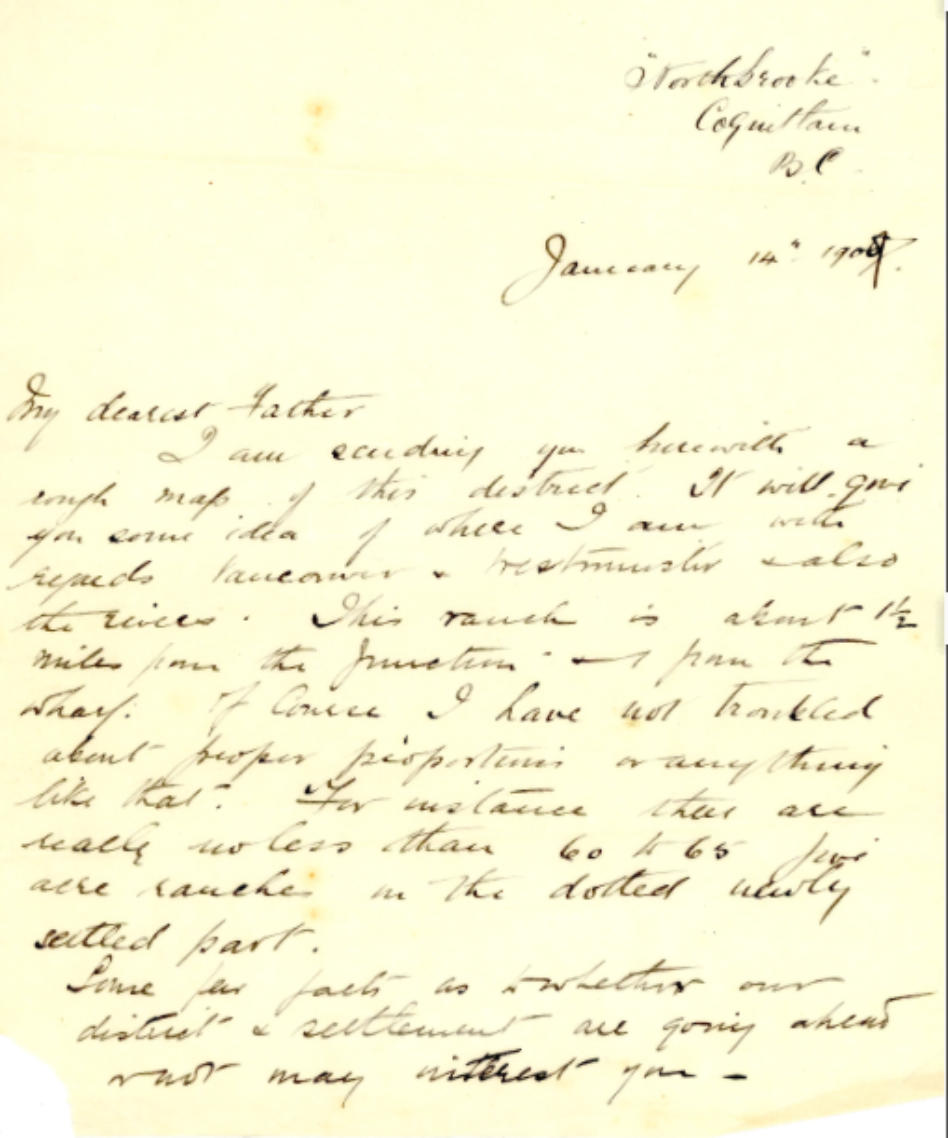 "Northbrooke".
Coquitlam
B.C.
January 14" 190
My dearest Father
I am sending you herewith a
rough map of this district. It will give
you some idea of where I am with
regards Vancouver & Westminster & also
the rivers. This ranch is about 1½
miles from the Junction & 1 from the
wharf. Of course I have not troubled
about proper proportions or anything
like that. For instance there are
really no less than 60 to 65 five
acre ranches in the dotted newly
settled part.
Some few facts as to whether our
district & settlement are going ahead
or not may interest you -